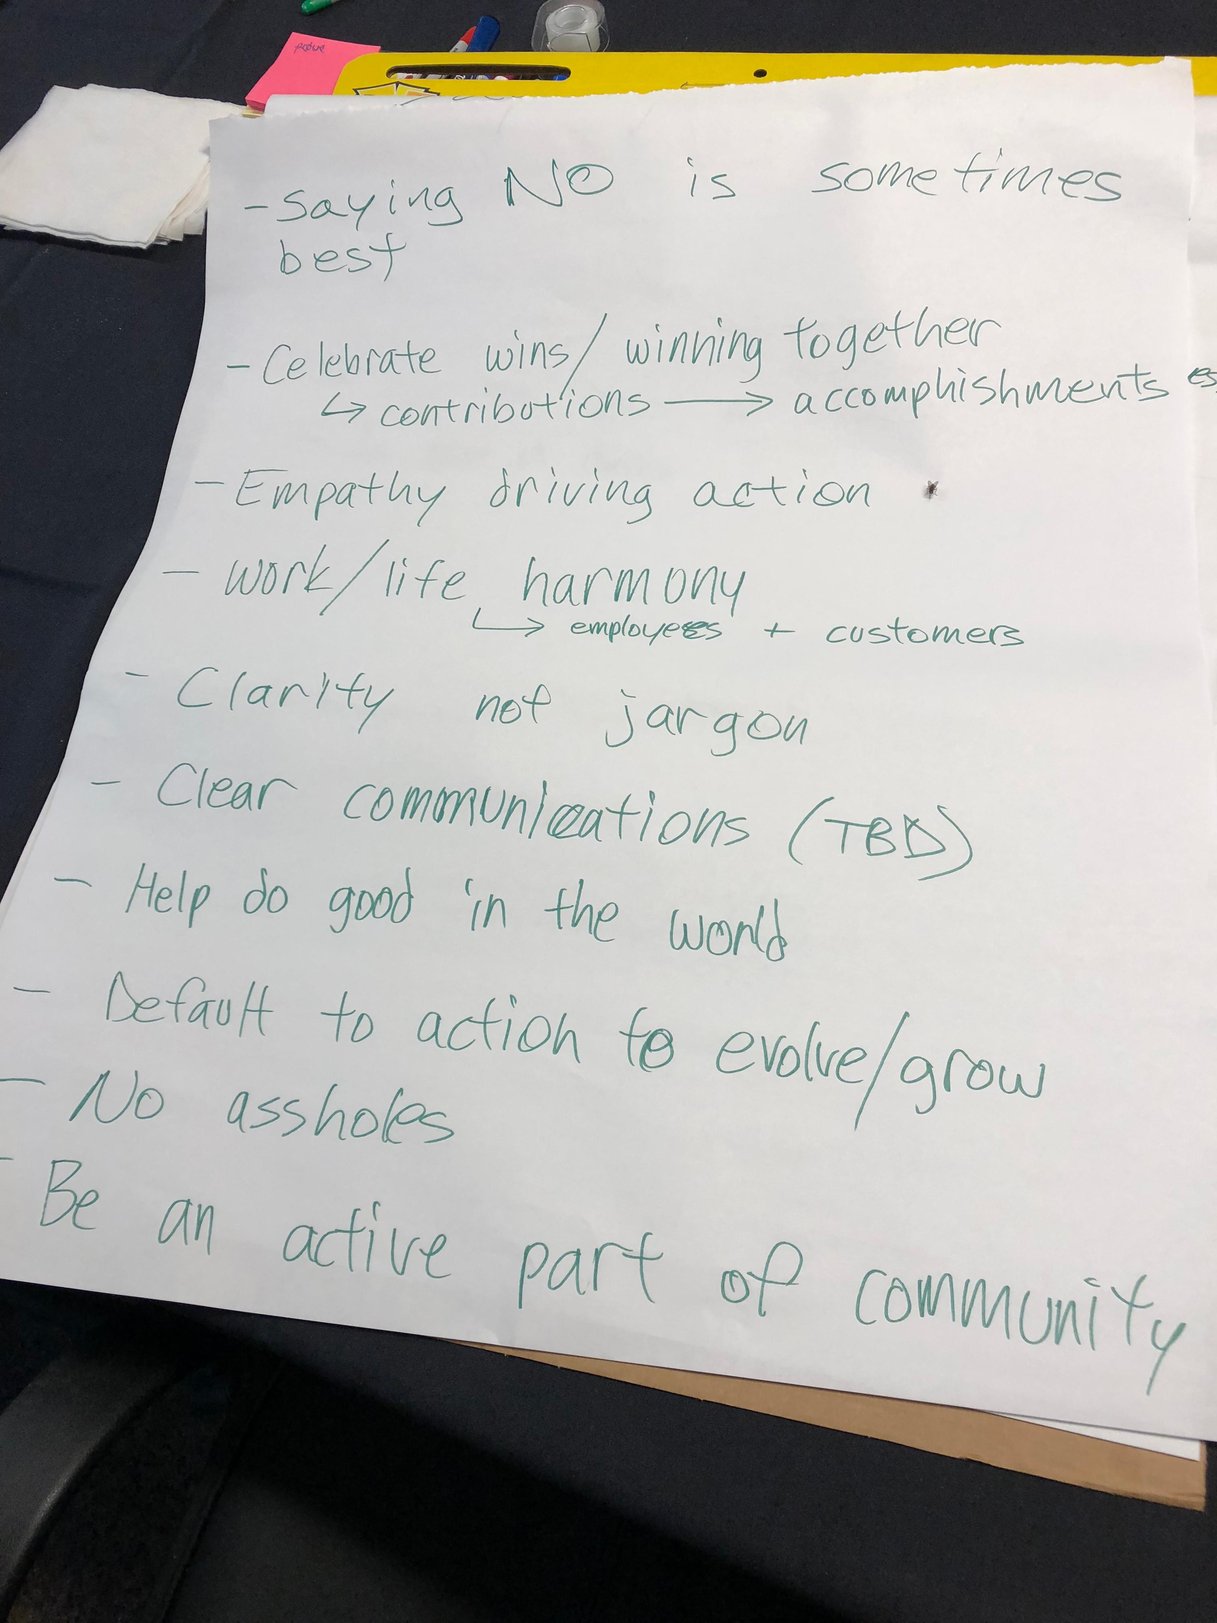 - Saying NO is sometimes
best
- Celebrate wins/winning together
↳ contributions → accomplishments
- Empathy driving action
- Work/life harmony
↳ employees + customers
- Clarity not jargon
- Clear communications (TBD)
- Help do good in the world
- Default to action to evolve/grow
- No assholes
- Be an active part of community